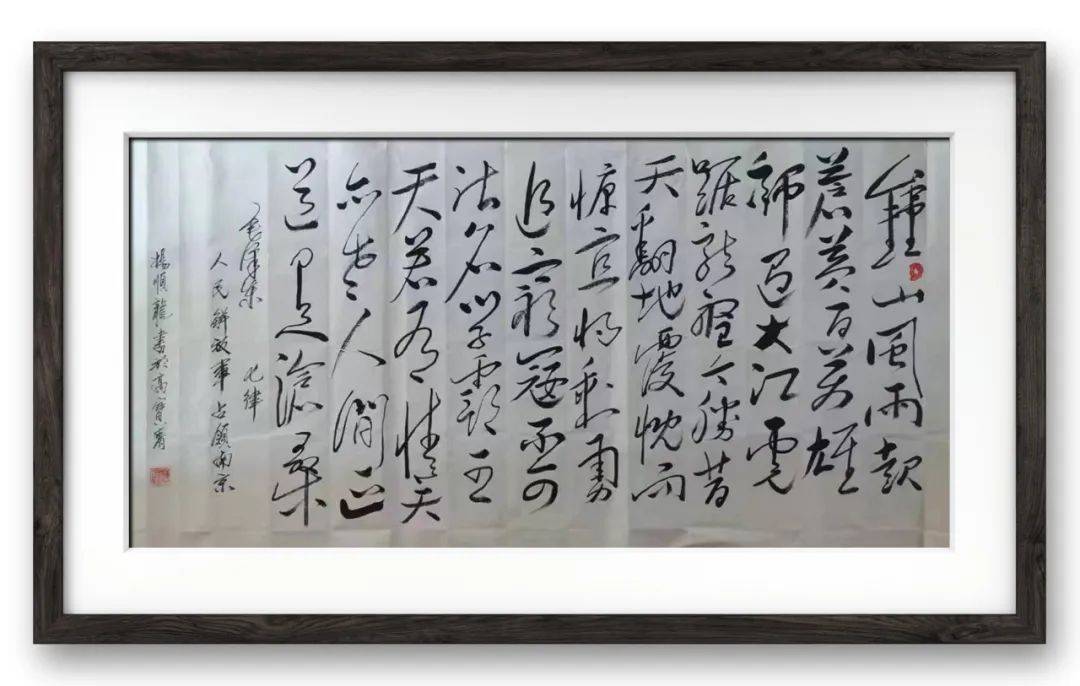 鍾山風雨起
蒼黃百萬雄
師過大江虎
踞龍盤今勝昔
天翻地覆慨而
慷宜將剩勇
追窮寇不可
沽名學霸王
天若有情天
亦老人間正
道是滄桑
毛澤東 七律
人民解放軍占領南京
楊順龍書於高寶